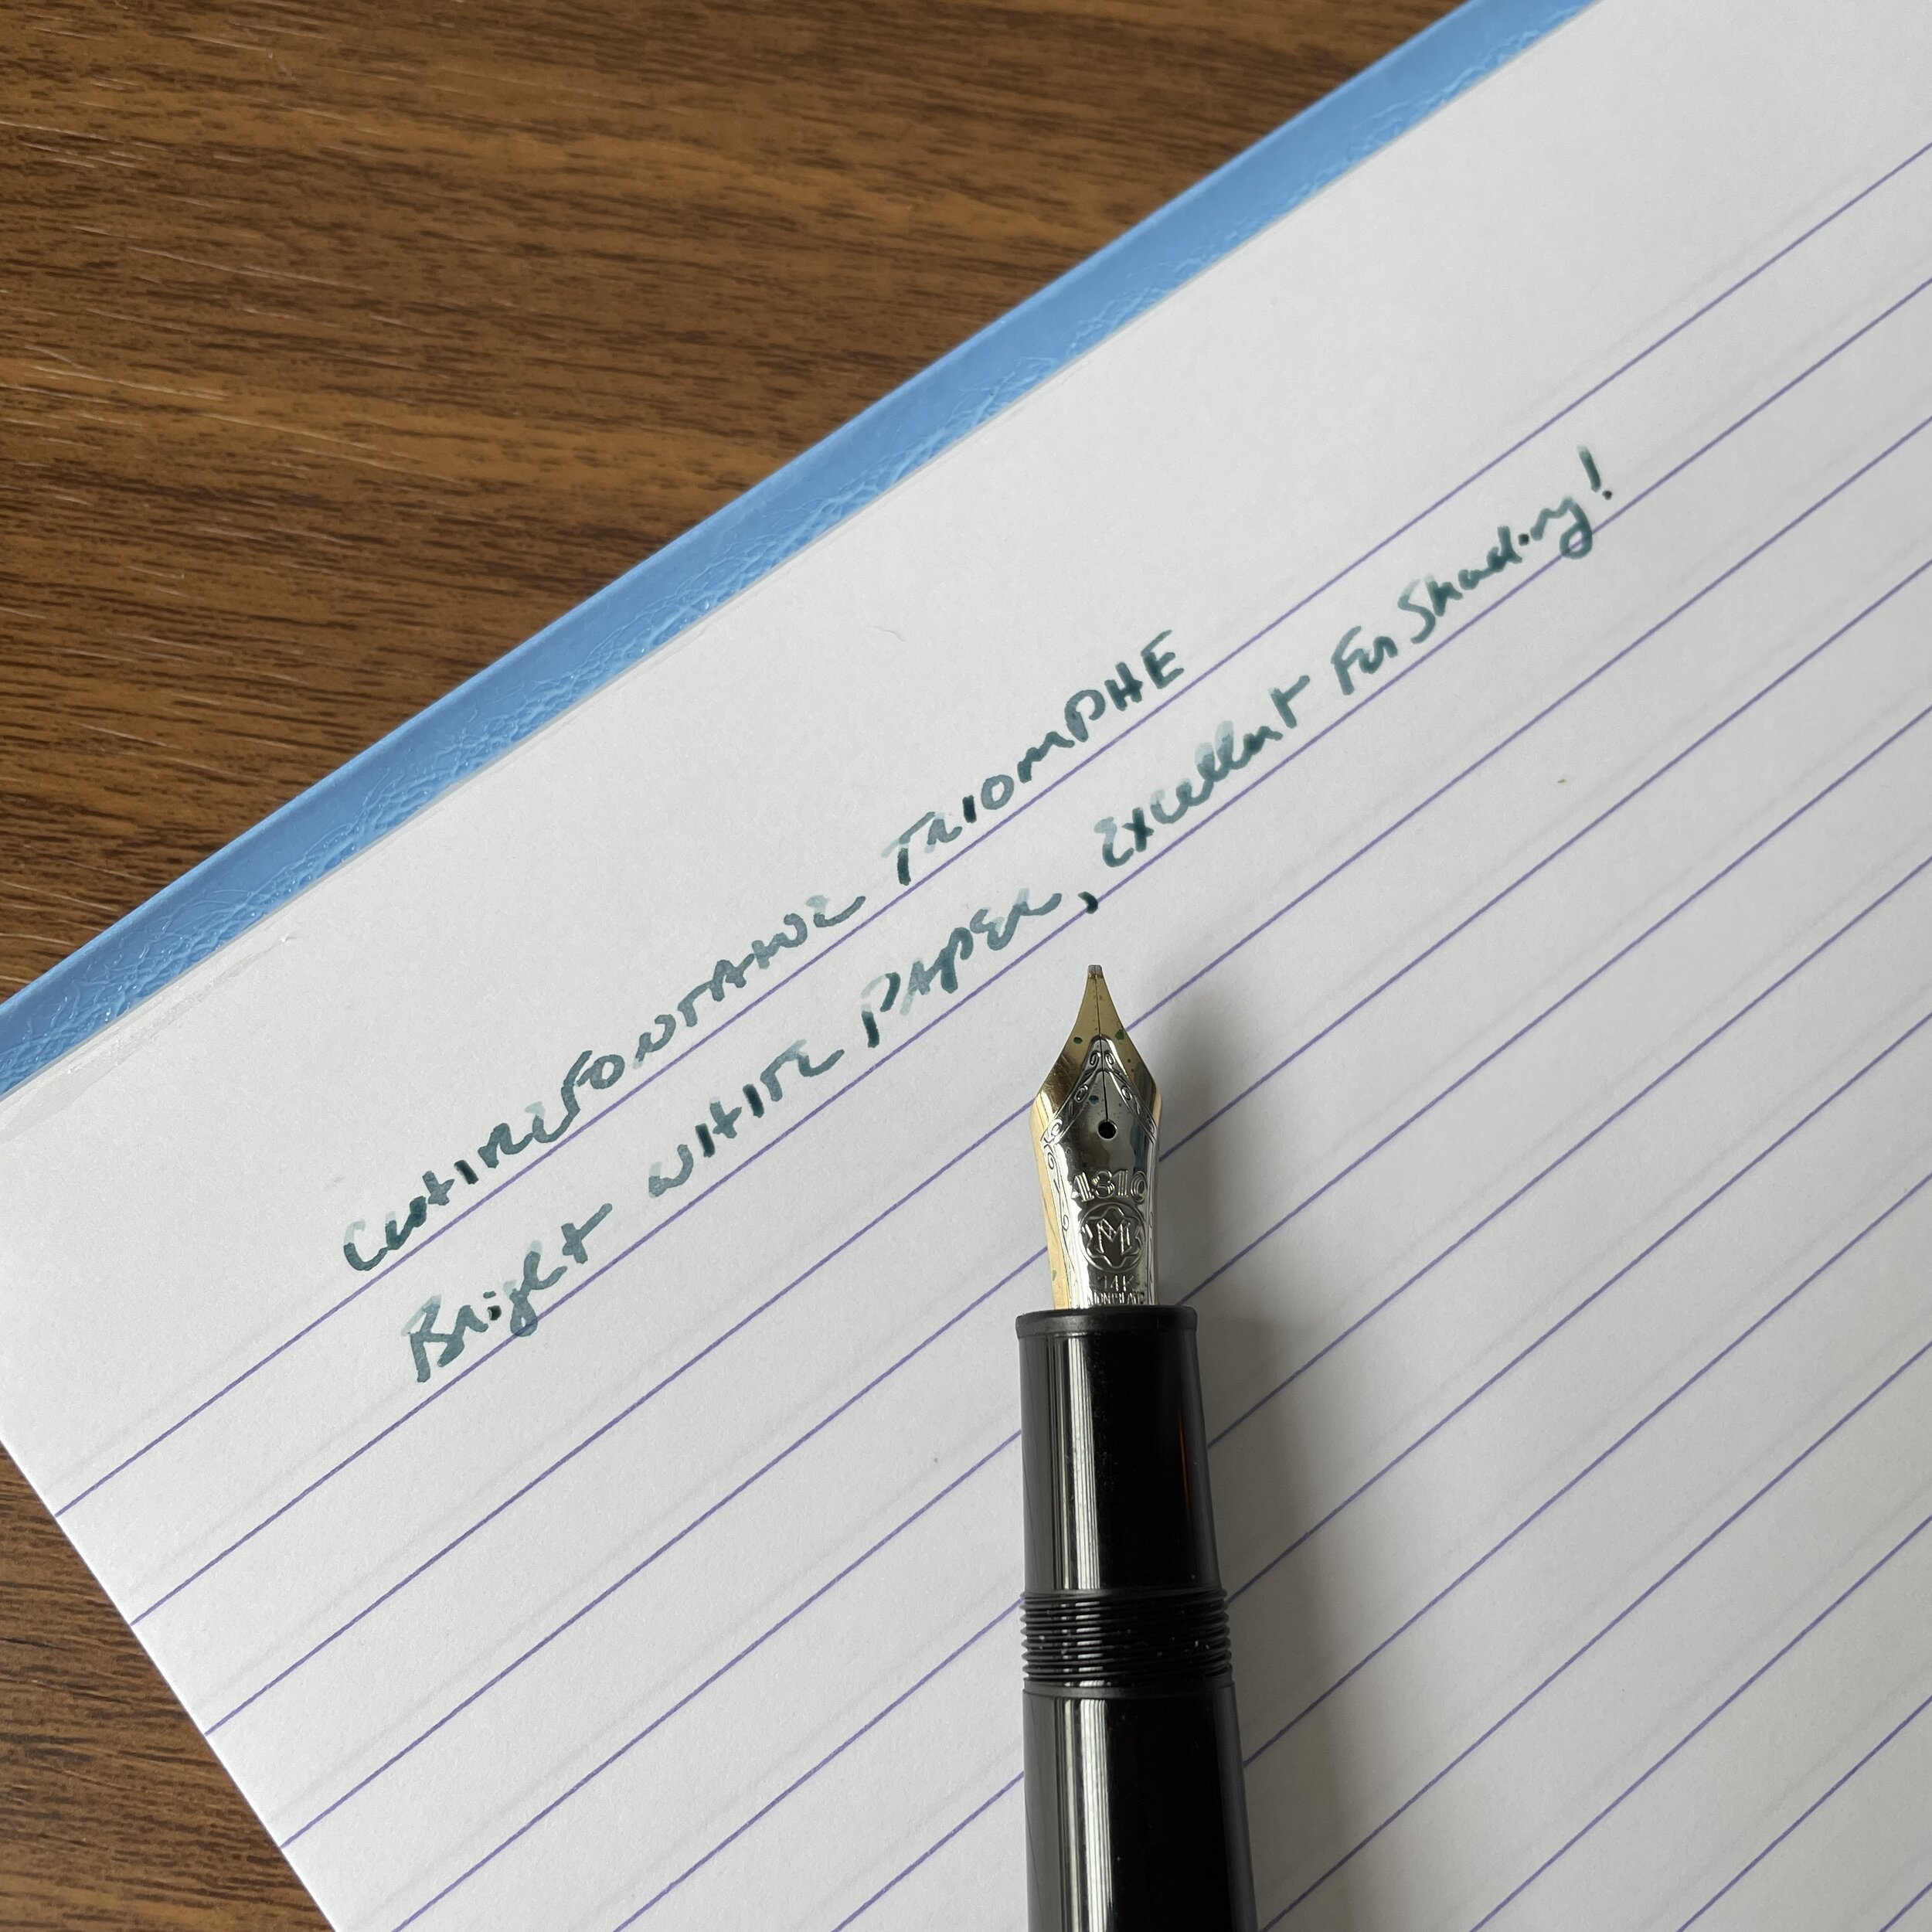 CLAIREFONTAINE TRIOMPHE
Bright WHITE PAPER, Excellent For Shading!
4810
M
14K
MONTBLANC